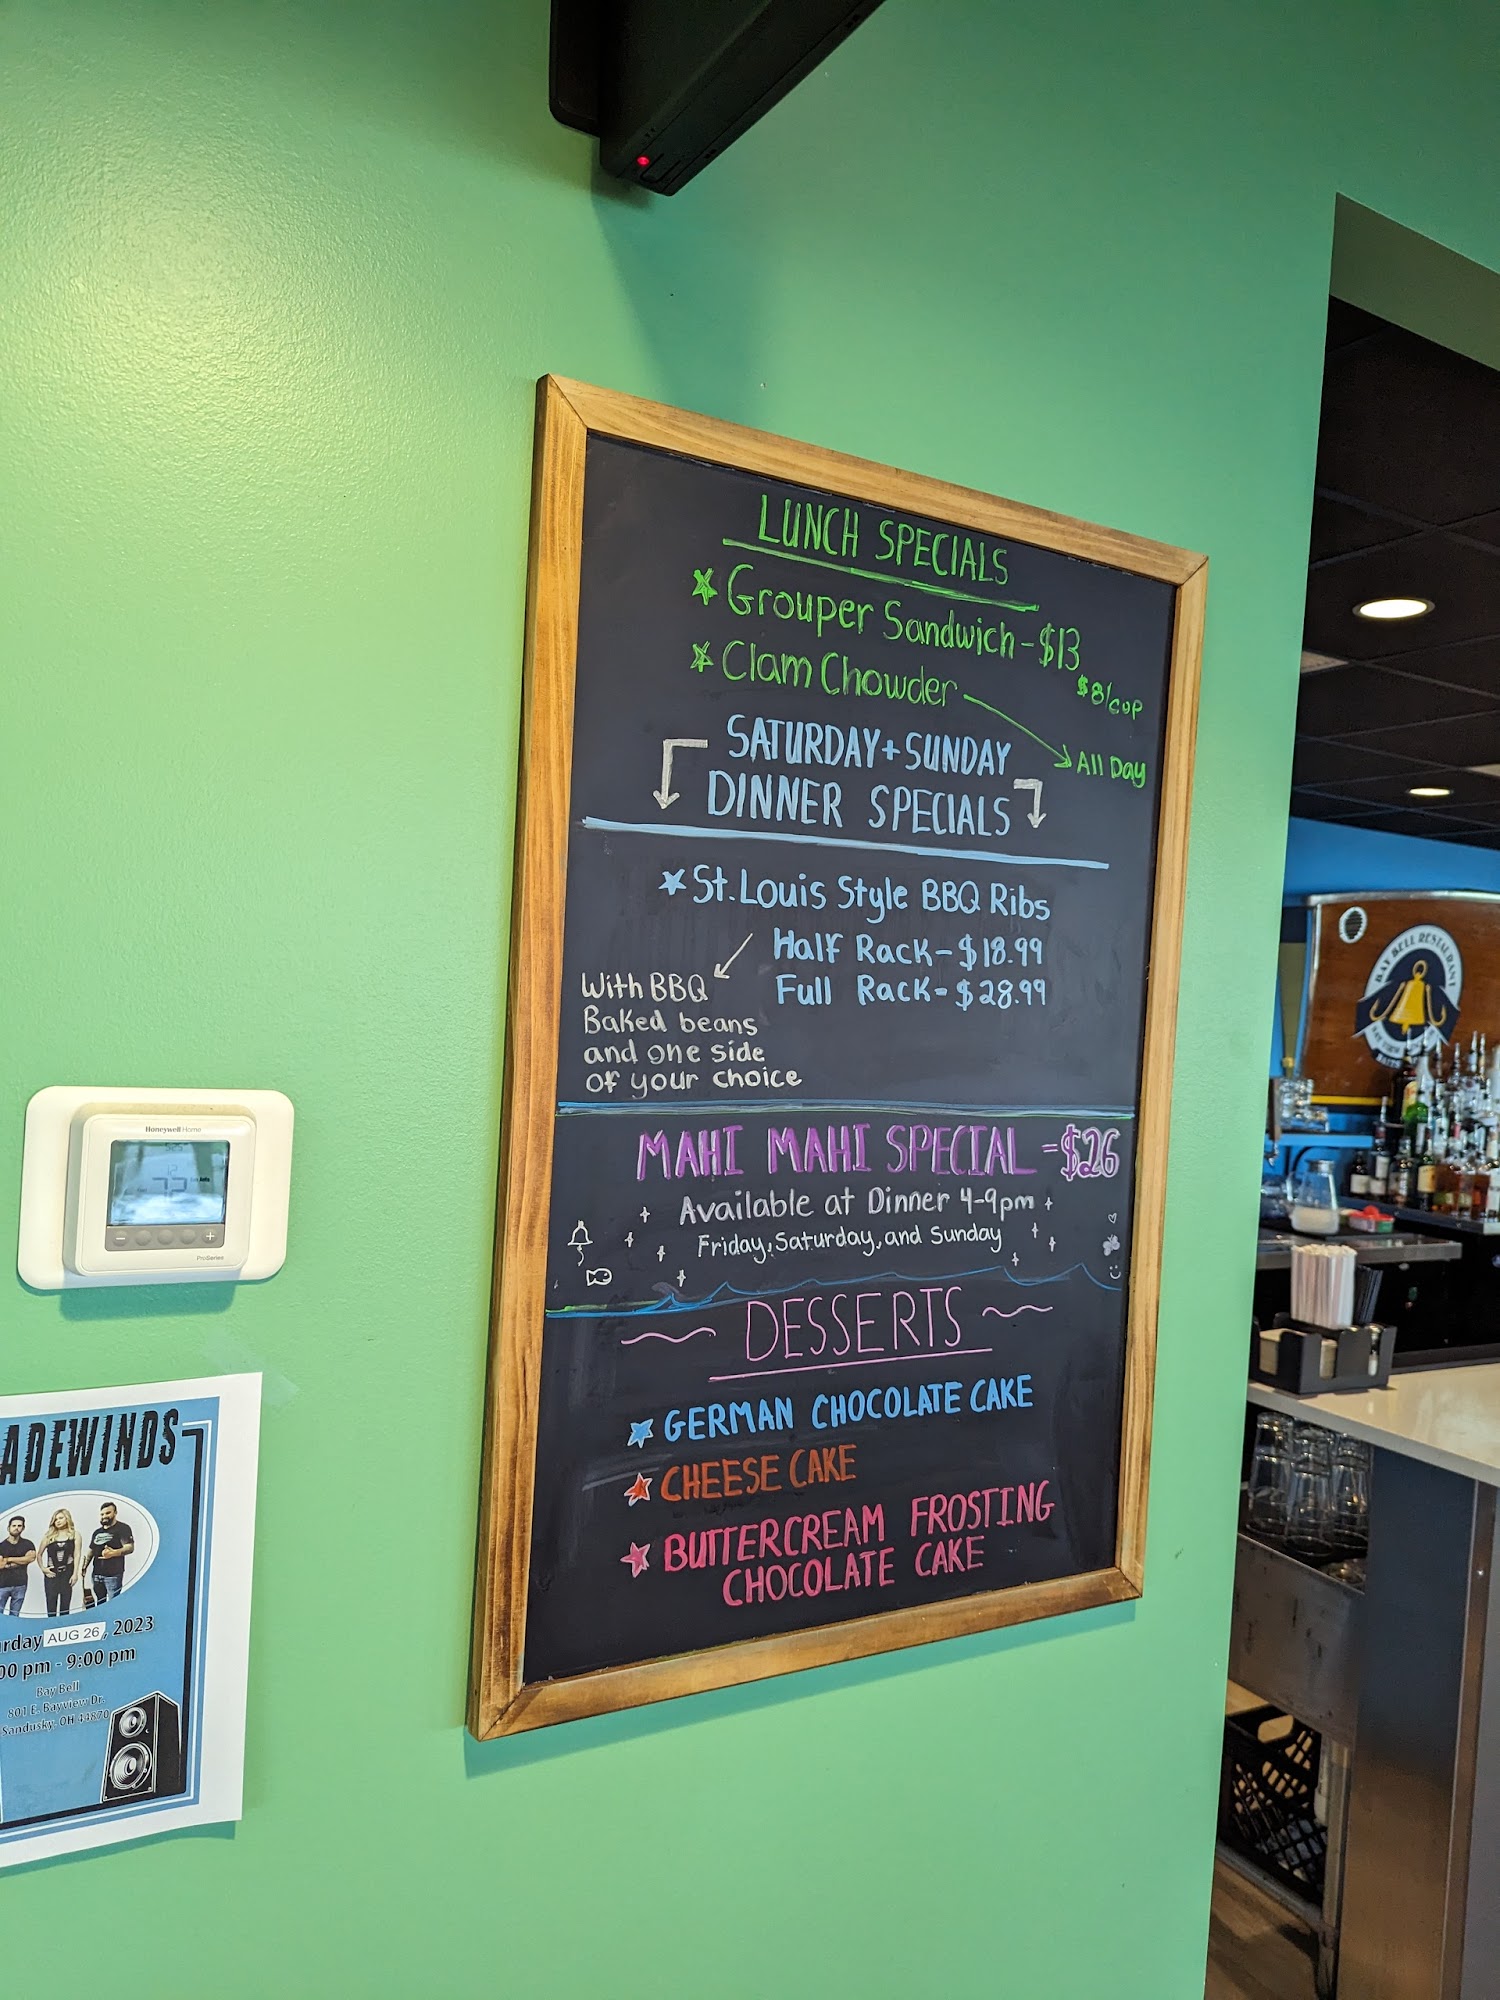 LUNCH SPECIALS
Grouper Sandwich - $13
Clam Chowder
$8/cup
All Day
SATURDAY + SUNDAY
DINNER SPECIALS
St. Louis Style BBQ Ribs
Half Rack - $18.99
Full Rack - $28.99
With BBQ
Baked beans
and one side
of your choice
MAHI MAHI SPECIAL - $26
Available at Dinner 4-9pm
Friday, Saturday, and Sunday
DESSERTS
GERMAN CHOCOLATE CAKE
CHEESE CAKE
BUTTERCREAM FROSTING
CHOCOLATE CAKE
Honeywell Home
ProSeries
ADEWINDS
rday AUG 26, 2023
00 pm - 9:00 pm
Bay Bell
801 E. Bayview Dr.
Sandusky, OH 44870
BAY BELL RESTAURANT